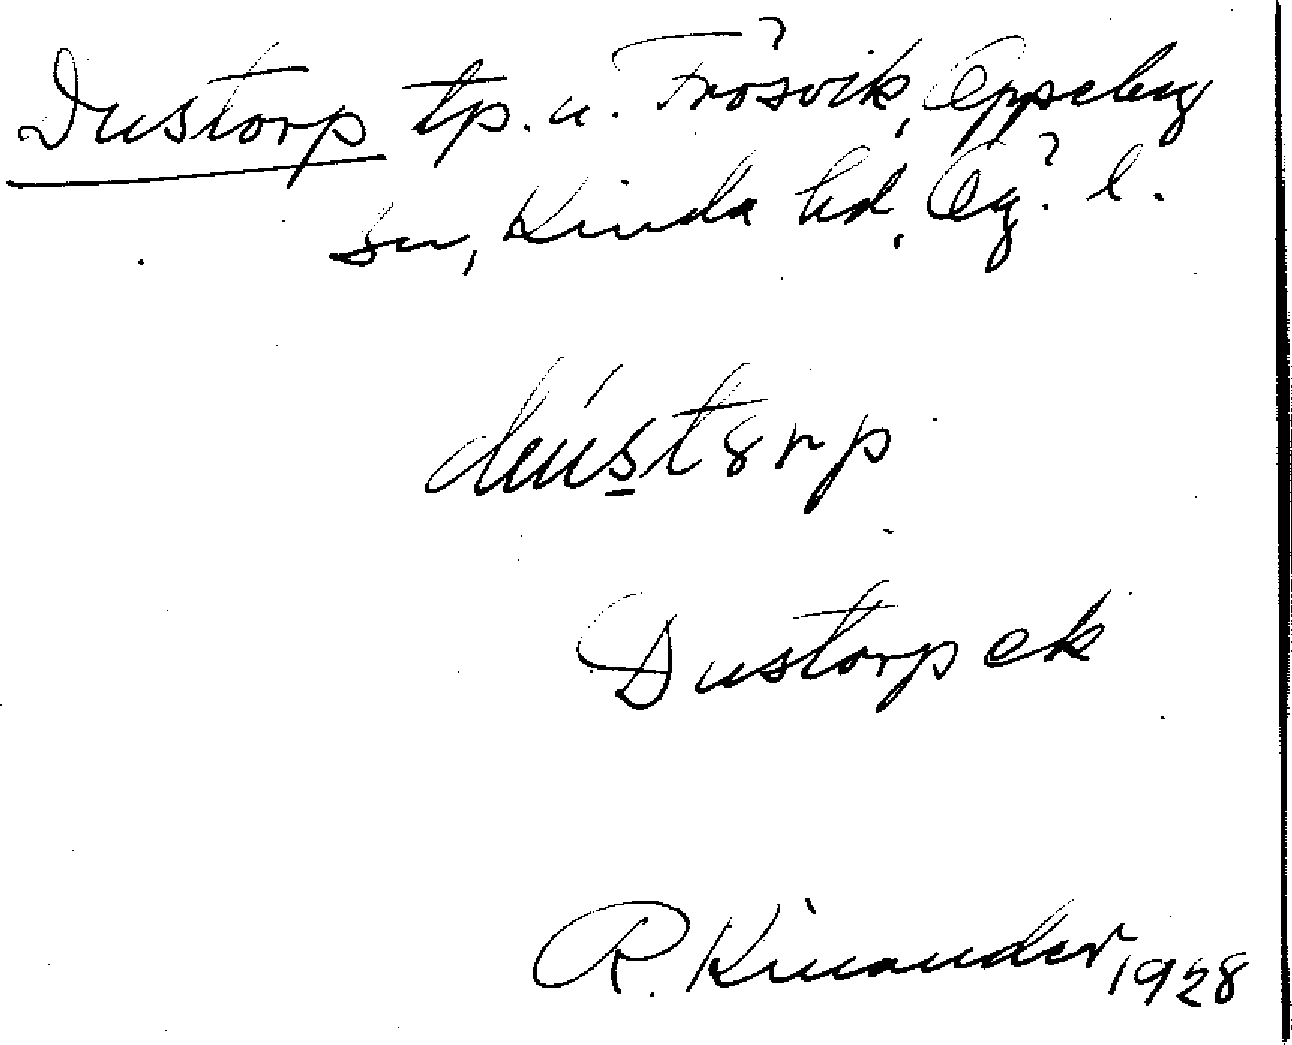 Dustorp tp. u. Frösvik, Oppeby
sn, Kinda hd, Ög. l.
dústorp
Dustorp ek
R. Kinander 1928